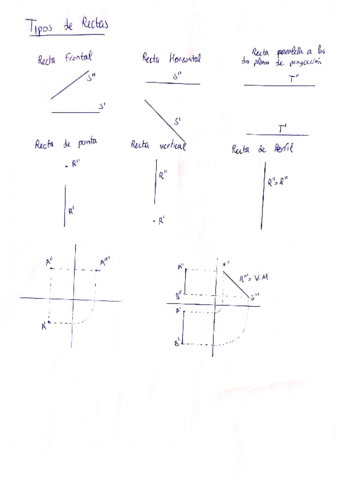 Tipos de Rectas
Recta Frontal
Recta Horizontal
Recta paralela a los
dos planos de proyección
S''
S'
S''
S'
T''
T'
Recta de punta
Recta vertical
Recta de Perfil
R''
R'
R''
R'
R'=R''
A''
A'''
A'
A''
B''
A'
B'
A'''
B'''
R'''=V.M